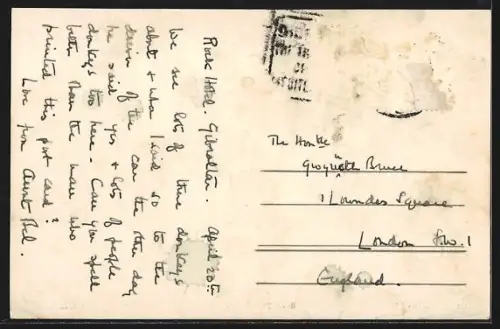 Rock Hotel. Gibraltar. April 20th
We see lots of these donkeys
about & when I said so to the
driver of the car the other day
he said yes & lots of people
donkeys too here - Can you spell
better than the man who
printed this post card?
Love from Aunt
The Honble
Bruce
1 Lowndes Square
London S.W.1
England.